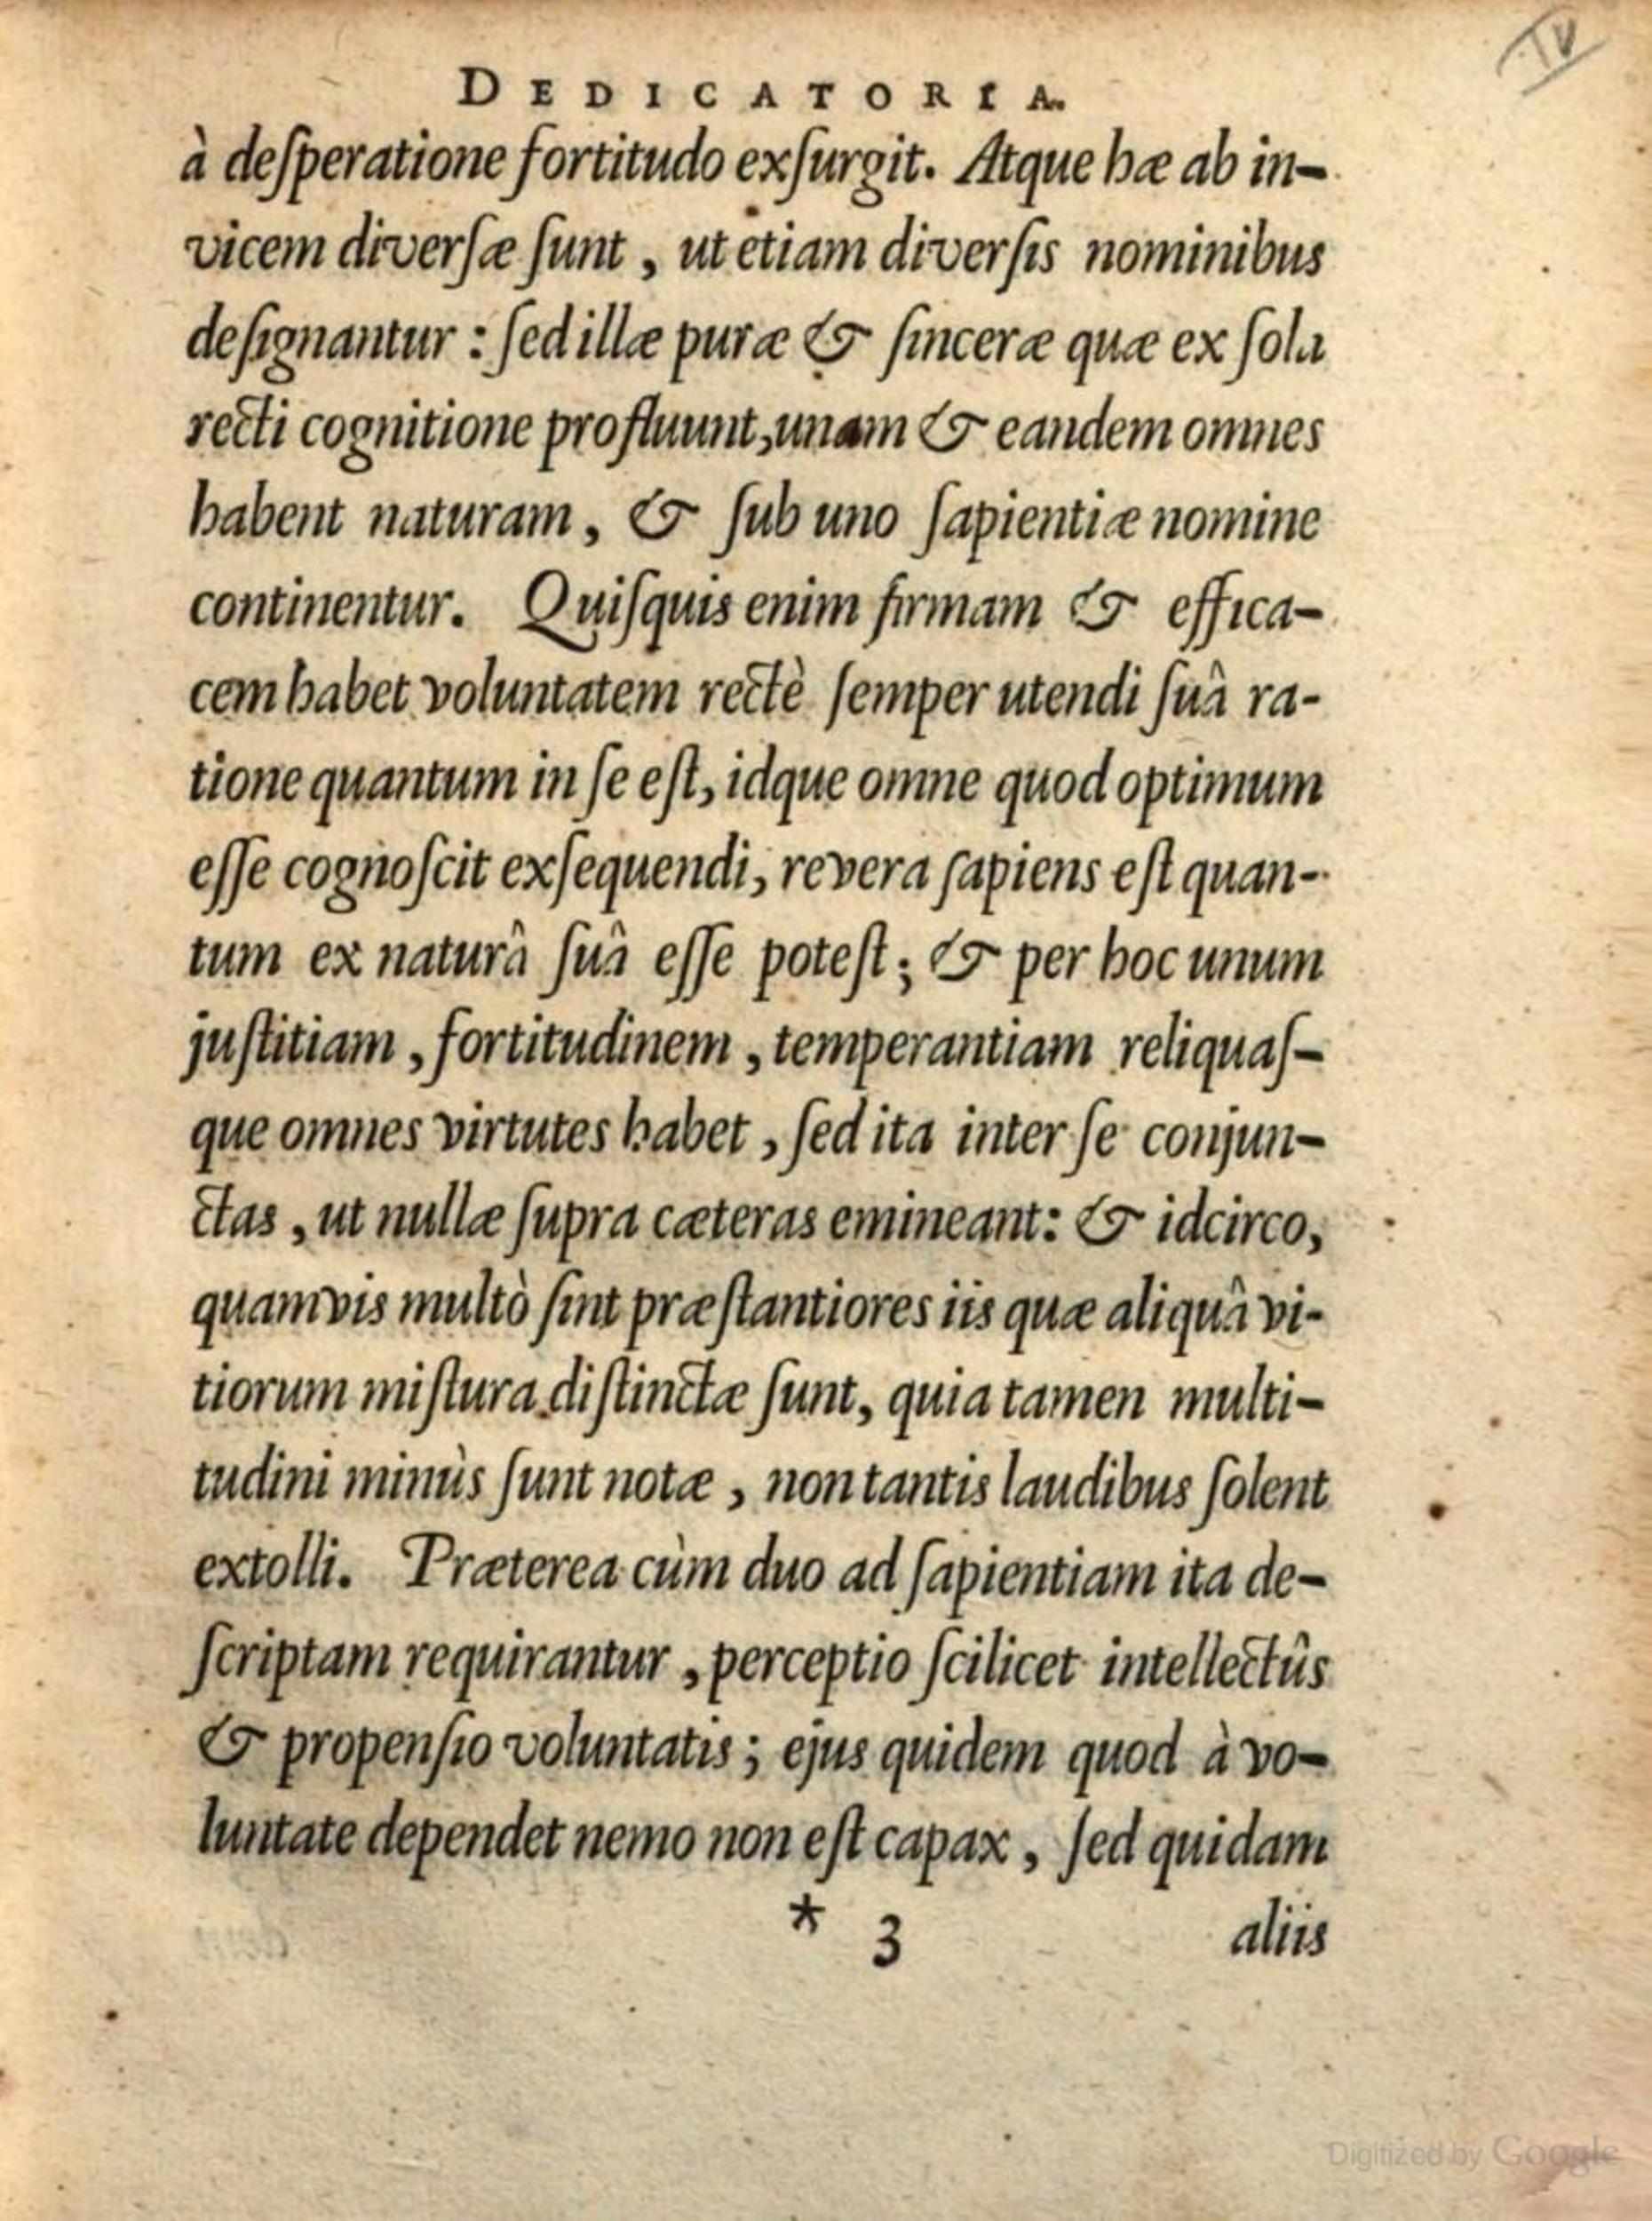 IV
DEDICATORIA.
à deſperatione fortitudo exſurgit. Atque hæ ab in-
vicem diverſæ ſunt, ut etiam diverſis nominibus
deſignantur: ſed illæ puræ & ſinceræ quæ ex ſola
recti cognitione profluunt, unam & eandem omnes
habent naturam, & ſub uno ſapientiæ nomine
continentur. Quiſquis enim firmam & effica-
cem habet voluntatem rectè ſemper utendi ſuâ ra-
tione quantum in ſe eſt, idque omne quod optimum
eſſe cognoſcit exſequendi, revera ſapiens eſt quan-
tum ex naturâ ſuâ eſſe poteſt; & per hoc unum
juſtitiam, fortitudinem, temperantiam reliquaſ-
que omnes virtutes habet, ſed ita inter ſe conjun-
ctas, ut nullæ ſupra cæteras emineant: & idcirco,
quamvis multò ſint præſtantiores iis quæ aliquâ vi-
tiorum miſtura diſtinctæ ſunt, quia tamen multi-
tudini minùs ſunt notæ, non tantis laudibus ſolent
extolli. Præterea cùm duo ad ſapientiam ita de-
ſcriptam requirantur, perceptio ſcilicet intellectûs
& propenſio voluntatis; ejus quidem quod à vo-
luntate dependet nemo non eſt capax, ſed quidam
* 3 aliis
Digitized by Google